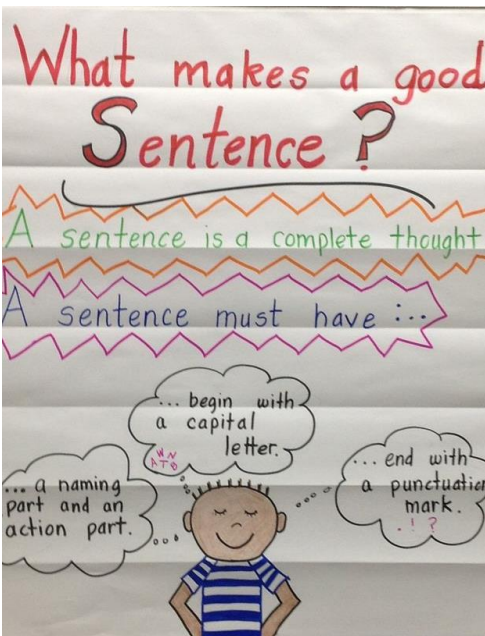 What makes a good
Sentence ?
A sentence is a complete thought
A sentence must have :...
... begin with
a capital
letter.
W N
A T B
... a naming
part and an
action part.
... end with
a punctuation
mark.
. ! ?